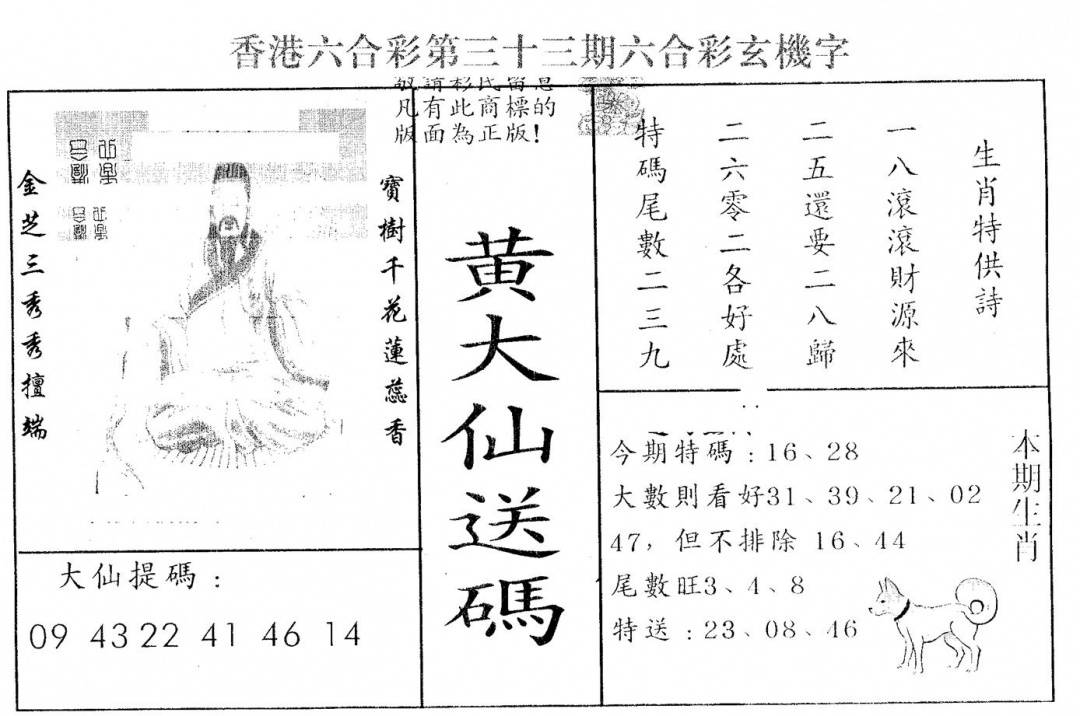 香港六合彩第三十三期六合彩玄機字
敬請彩民留意
凡有此商標的
版面為正版!
金芝三秀秀擅端
寶樹千花蓮蕊香
大仙提碼:
09 43 22 41 46 14
黃大仙送碼
生肖特供詩
一八滾滾財源來
二五還要二八歸
二六零二各好處
特碼尾數二三九
本期生肖
今期特碼:16、28
大數則看好31、39、21、02
47,但不排除 16、44
尾數旺3、4、8
特送:23、08、46